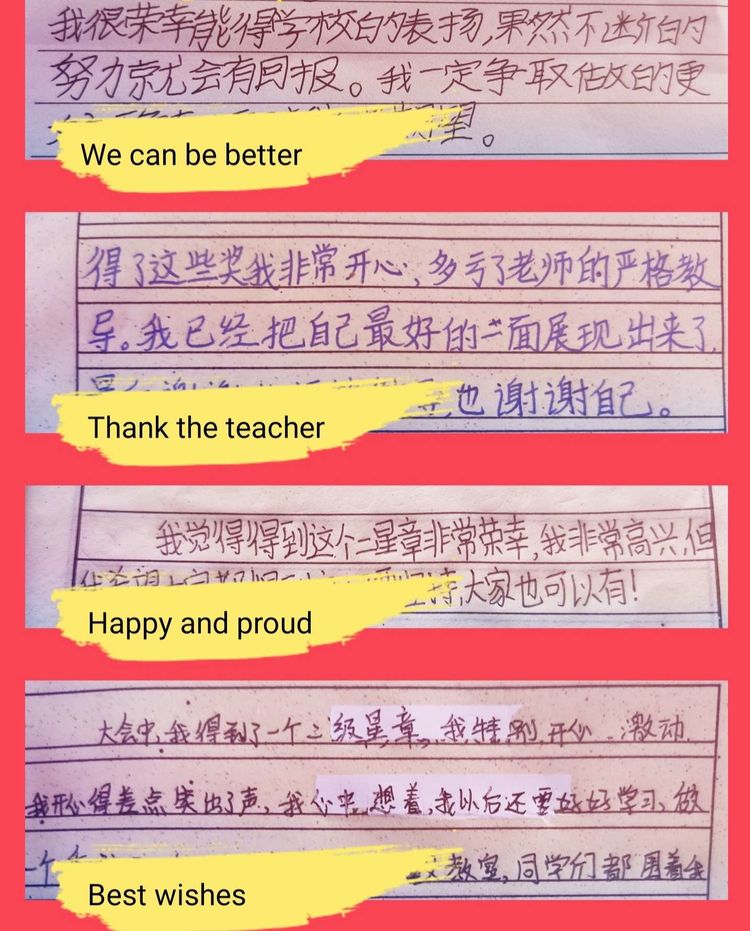 我很荣幸能得学校的表扬,果然不断的
努力就会有回报。我一定争取做的更
望。
We can be better
得了这些奖我非常开心,多亏了老师的严格教
导。我已经把自己最好的一面展现出来了,
也谢谢自己。
Thank the teacher
我觉得得到这个二星章非常荣幸,我非常高兴,但
持,大家也可以有!
Happy and proud
大会中,我得到了一个二级星章,我特别开心、激动,
我开心得差点笑出了声,我心中想着,我以后还要好好学习,做
一个
教室,同学们都围着我
Best wishes